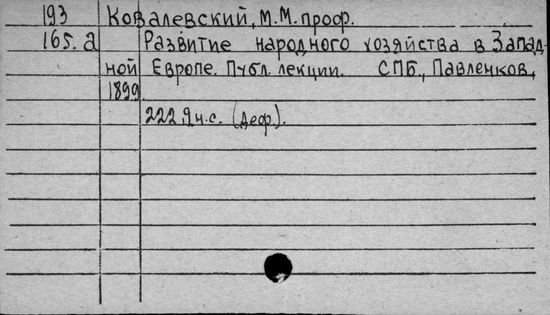 193 Ковалевский, М.М. проф.
165.а Развитие народного хозяйства в Запад-
ной Европе. Публ. лекции. СПБ., Павленков,
1899
222, н.с. (Деф.).